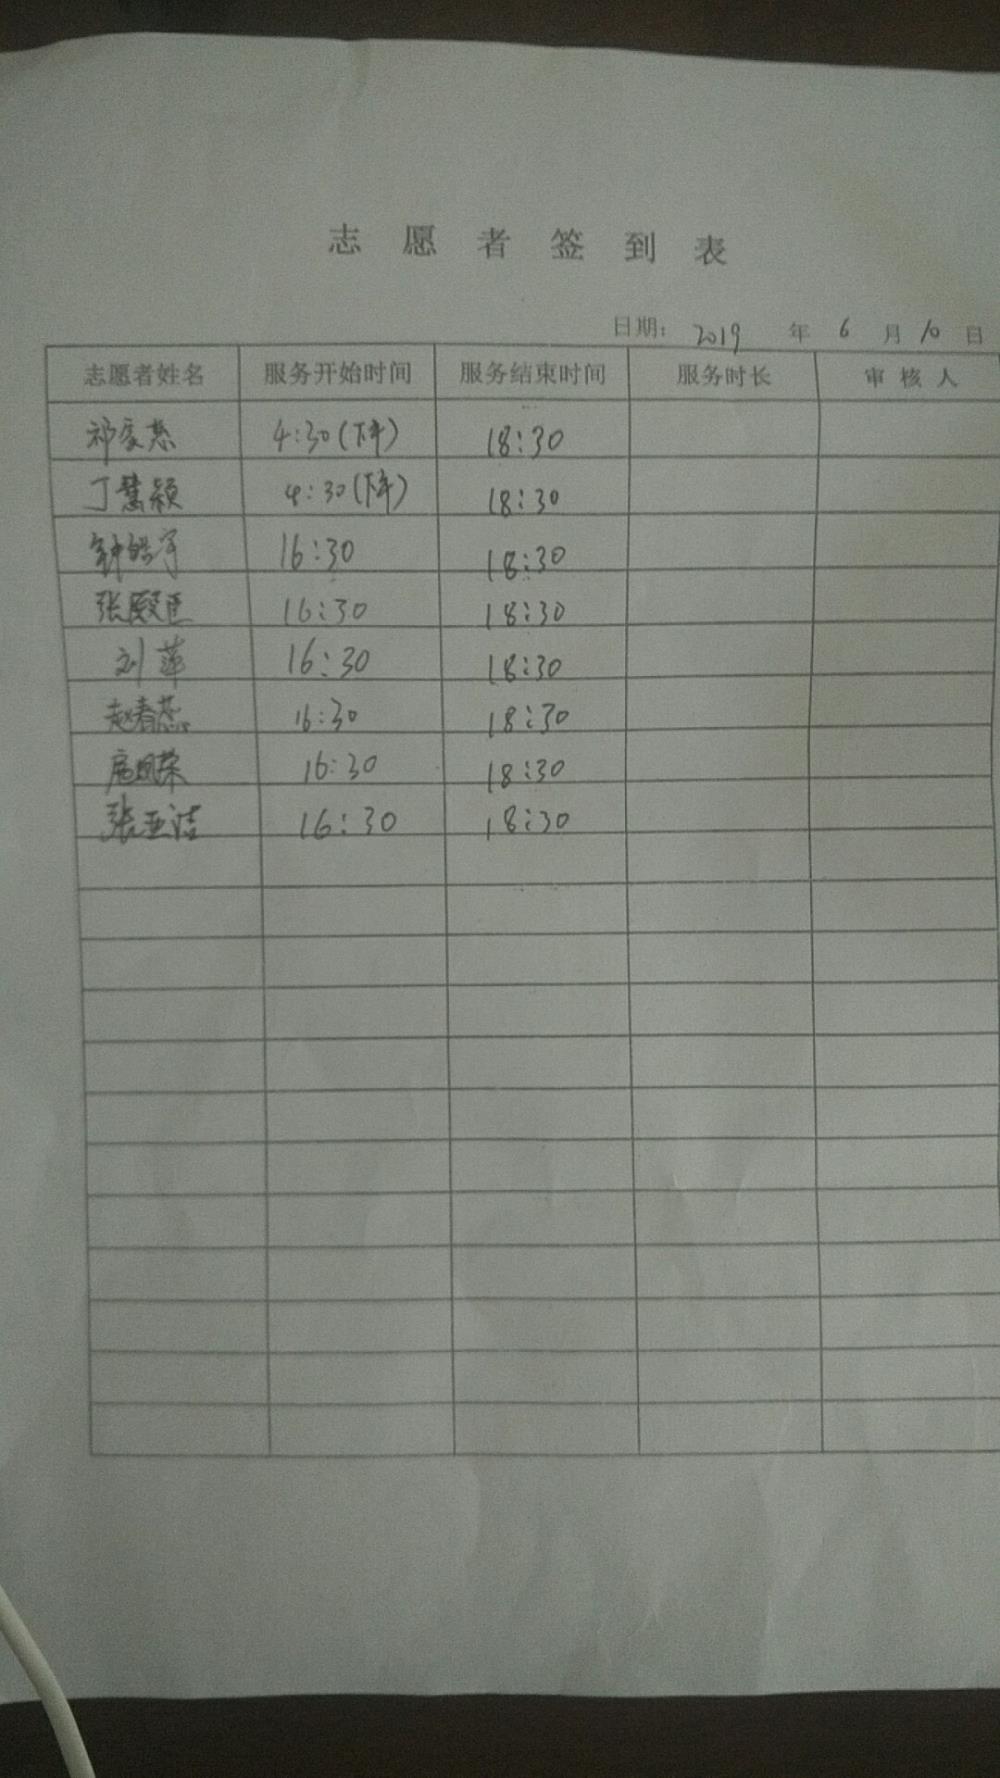 志愿者签到表
日期： 2019 年 6 月 10 日
志愿者姓名 服务开始时间 服务结束时间 服务时长 审核人
祁家慧 4:30(下午) 18:30
丁慧颖 4:30(下午) 18:30
钟皓宇 16:30 18:30
张殿臣 16:30 18:30
刘萍 16:30 18:30
赵春燕 16:30 18:30
扈凤荣 16:30 18:30
张亚洁 16:30 18:30